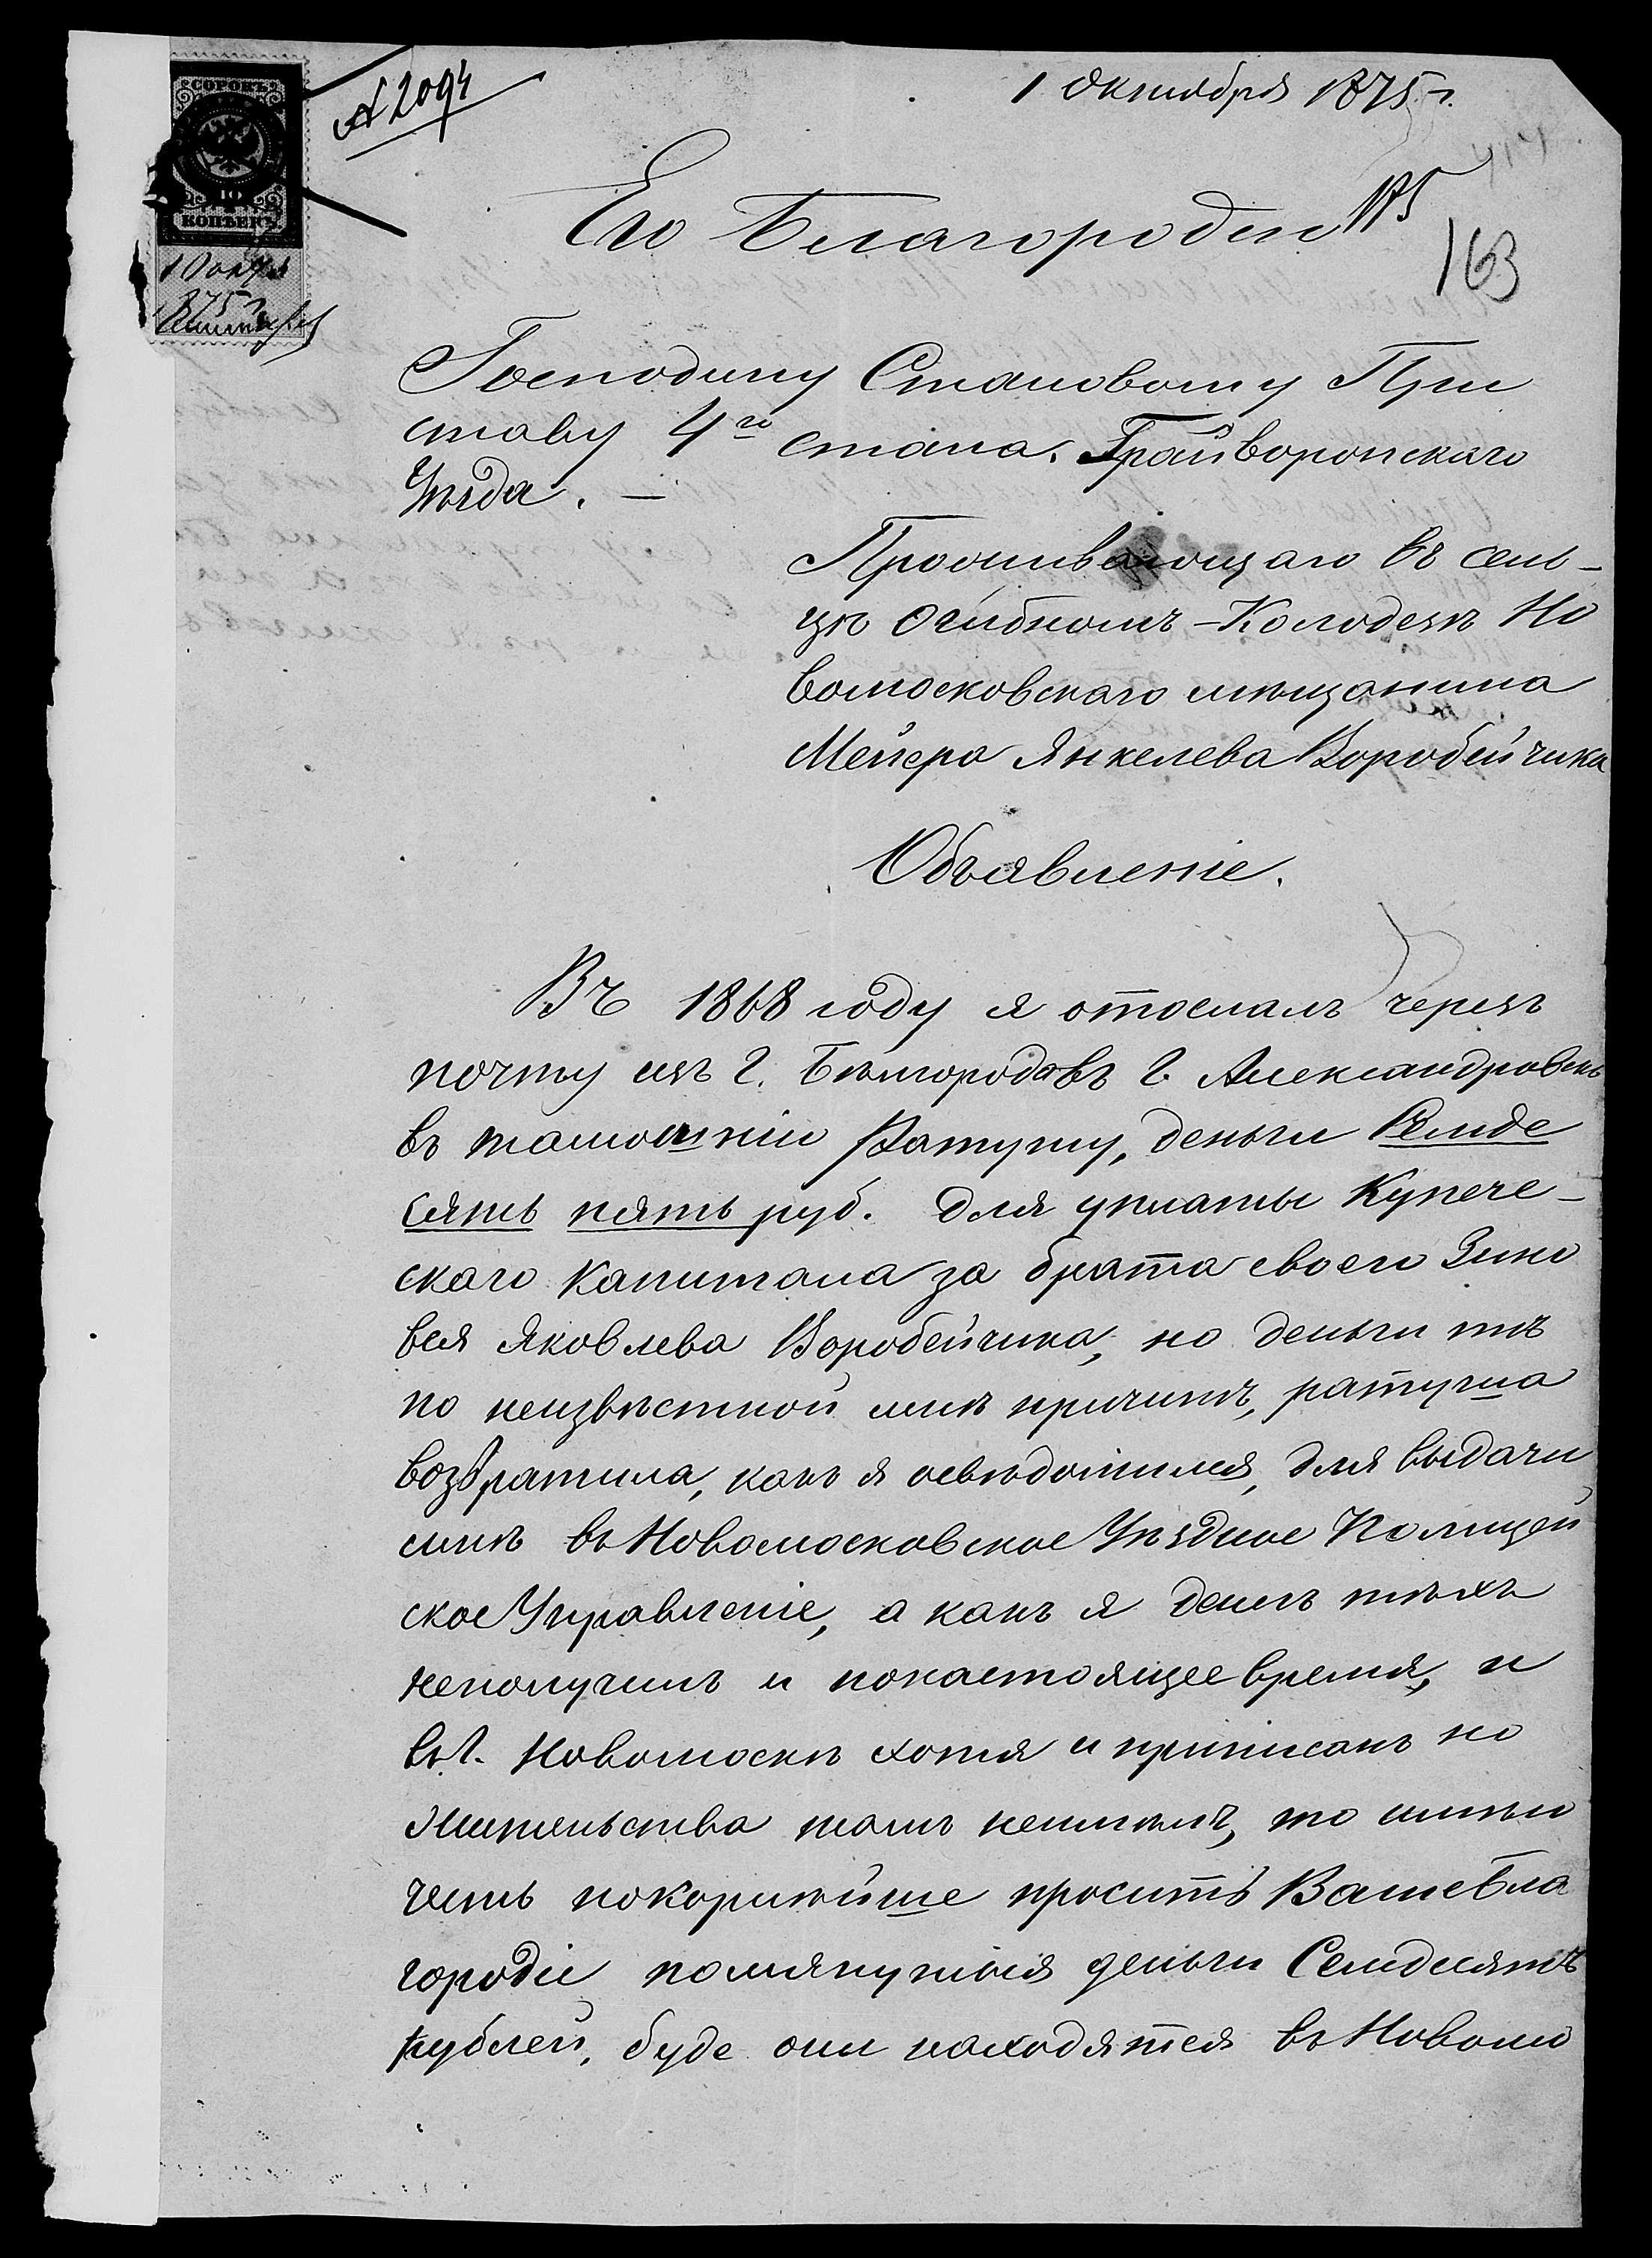 № 2094
1 Октября 1875 г.
СОРОКЪ
40
КОПѢЕКЪ
1 Октября
1875 г.
Его Благородію
175
163
Господину Становому При
ставу 4го стана. Грайворонскаго
Уѣзда. —
Проживающаго въ сель-
цѣ Колодезѣ Но
вомосковскаго мѣщанина
Мейера Янкелева Воробейчика
Объявленіе.
Въ 1868 году я отослалъ черезъ
почту изъ г. Бѣлгорода въ г. Александровскъ
въ тамошнію Ратушу, деньги Семде
сять пять руб. для уплаты Купече-
скаго Капитала за брата своего Зино
вея Яковлева Воробейчика, но деньги тѣ
по неизвѣстной мнѣ причинѣ, ратуша
возвратила, какъ я освѣдомился, для выдачи
мнѣ въ Новомосковское Уѣздное Полицей
ское Управленіе, а какъ я денегъ тѣхъ
неполучилъ и понастоящее время, и
въ г. Новомоскѣ хотя и приписанъ но
жительства тамъ неимѣлъ, то имѣю
честь покорнѣйше проситъ Ваше Бла
городіе помянутыя деньги Семдесятъ
рублей, буде они находятся въ Новомо